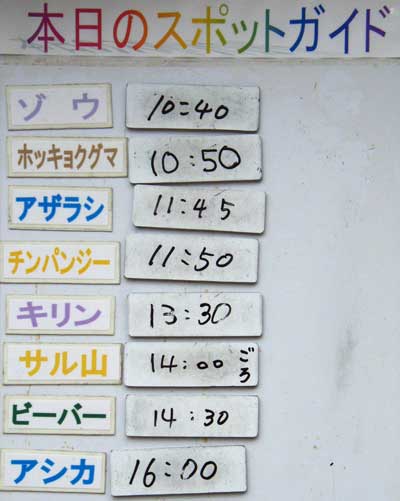 本日のスポットガイド
ゾウ 10:40
ホッキョクグマ 10:50
アザラシ 11:45
チンパンジー 11:50
キリン 13:30
サル山 14:00ごろ
ビーバー 14:30
アシカ 16:00